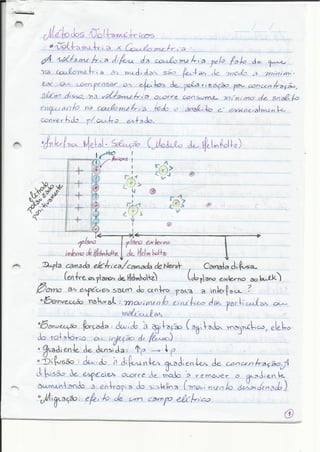 Métodos Voltamétricos
• Voltametria x Coulometria:
A voltametria difere da coulometria pelo fato de que
na coulometria as medidas são feitas de modo a minimi-
zar ou compensar os efeitos de polarização por concentração,
além disso, na voltametria ocorre consumo mínimo de analito
enquanto na coulometria todo o analito é essencialmente
convertido p/ outro estado.
• Interface Metal - Solução (Modelo de Helmholtz)
H₂O
Ânions
eletrodo
polarizado
positivamente
plano
interno de Helmholtz
plano externo
de Helmholtz
Dupla camada elétrica/camada de Nernst
(entre os planos de Helmholtz)
Camada difusa
(do plano externo ao bulk)
Como as espécies saem do centro para a interface?
• Convecção natural: movimento cinético das partículas ou
moléculas
• Convecção forçada: devido à agitação (agitador magnético, eletro-
do rotatório ou injeção de fluxo)
• Gradiente de densidade:
• Difusão: devido à diferentes gradientes de concentração. A
difusão de espécies ocorre de modo a remover o gradiente
aumentando a entropia do sistema (movimento desordenado)
• Migração: efeito de um campo elétrico
1